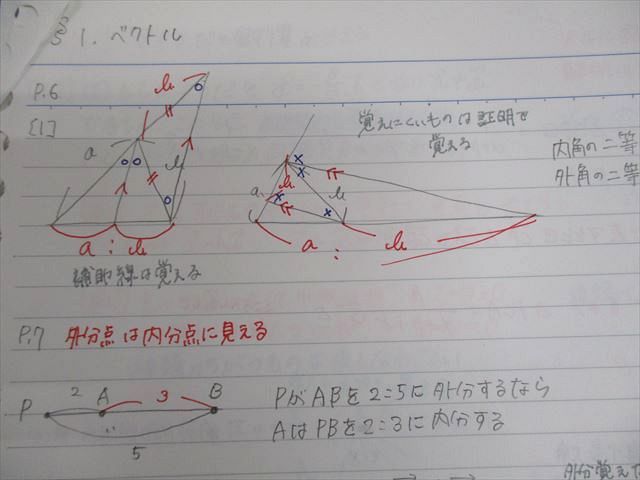 §1. ベクトル
P.6
[1]
覚えにくいものは証明で
覚える
内角の二等
外角の二等
a
b
b
a : b
a
b
b
a : b
補助線は覚える
P.7 外分点は内分点に見える
P 2 A 3 B
5
PがABを2:5に外分するなら
AはPBを2:3に内分する
外分覚えて